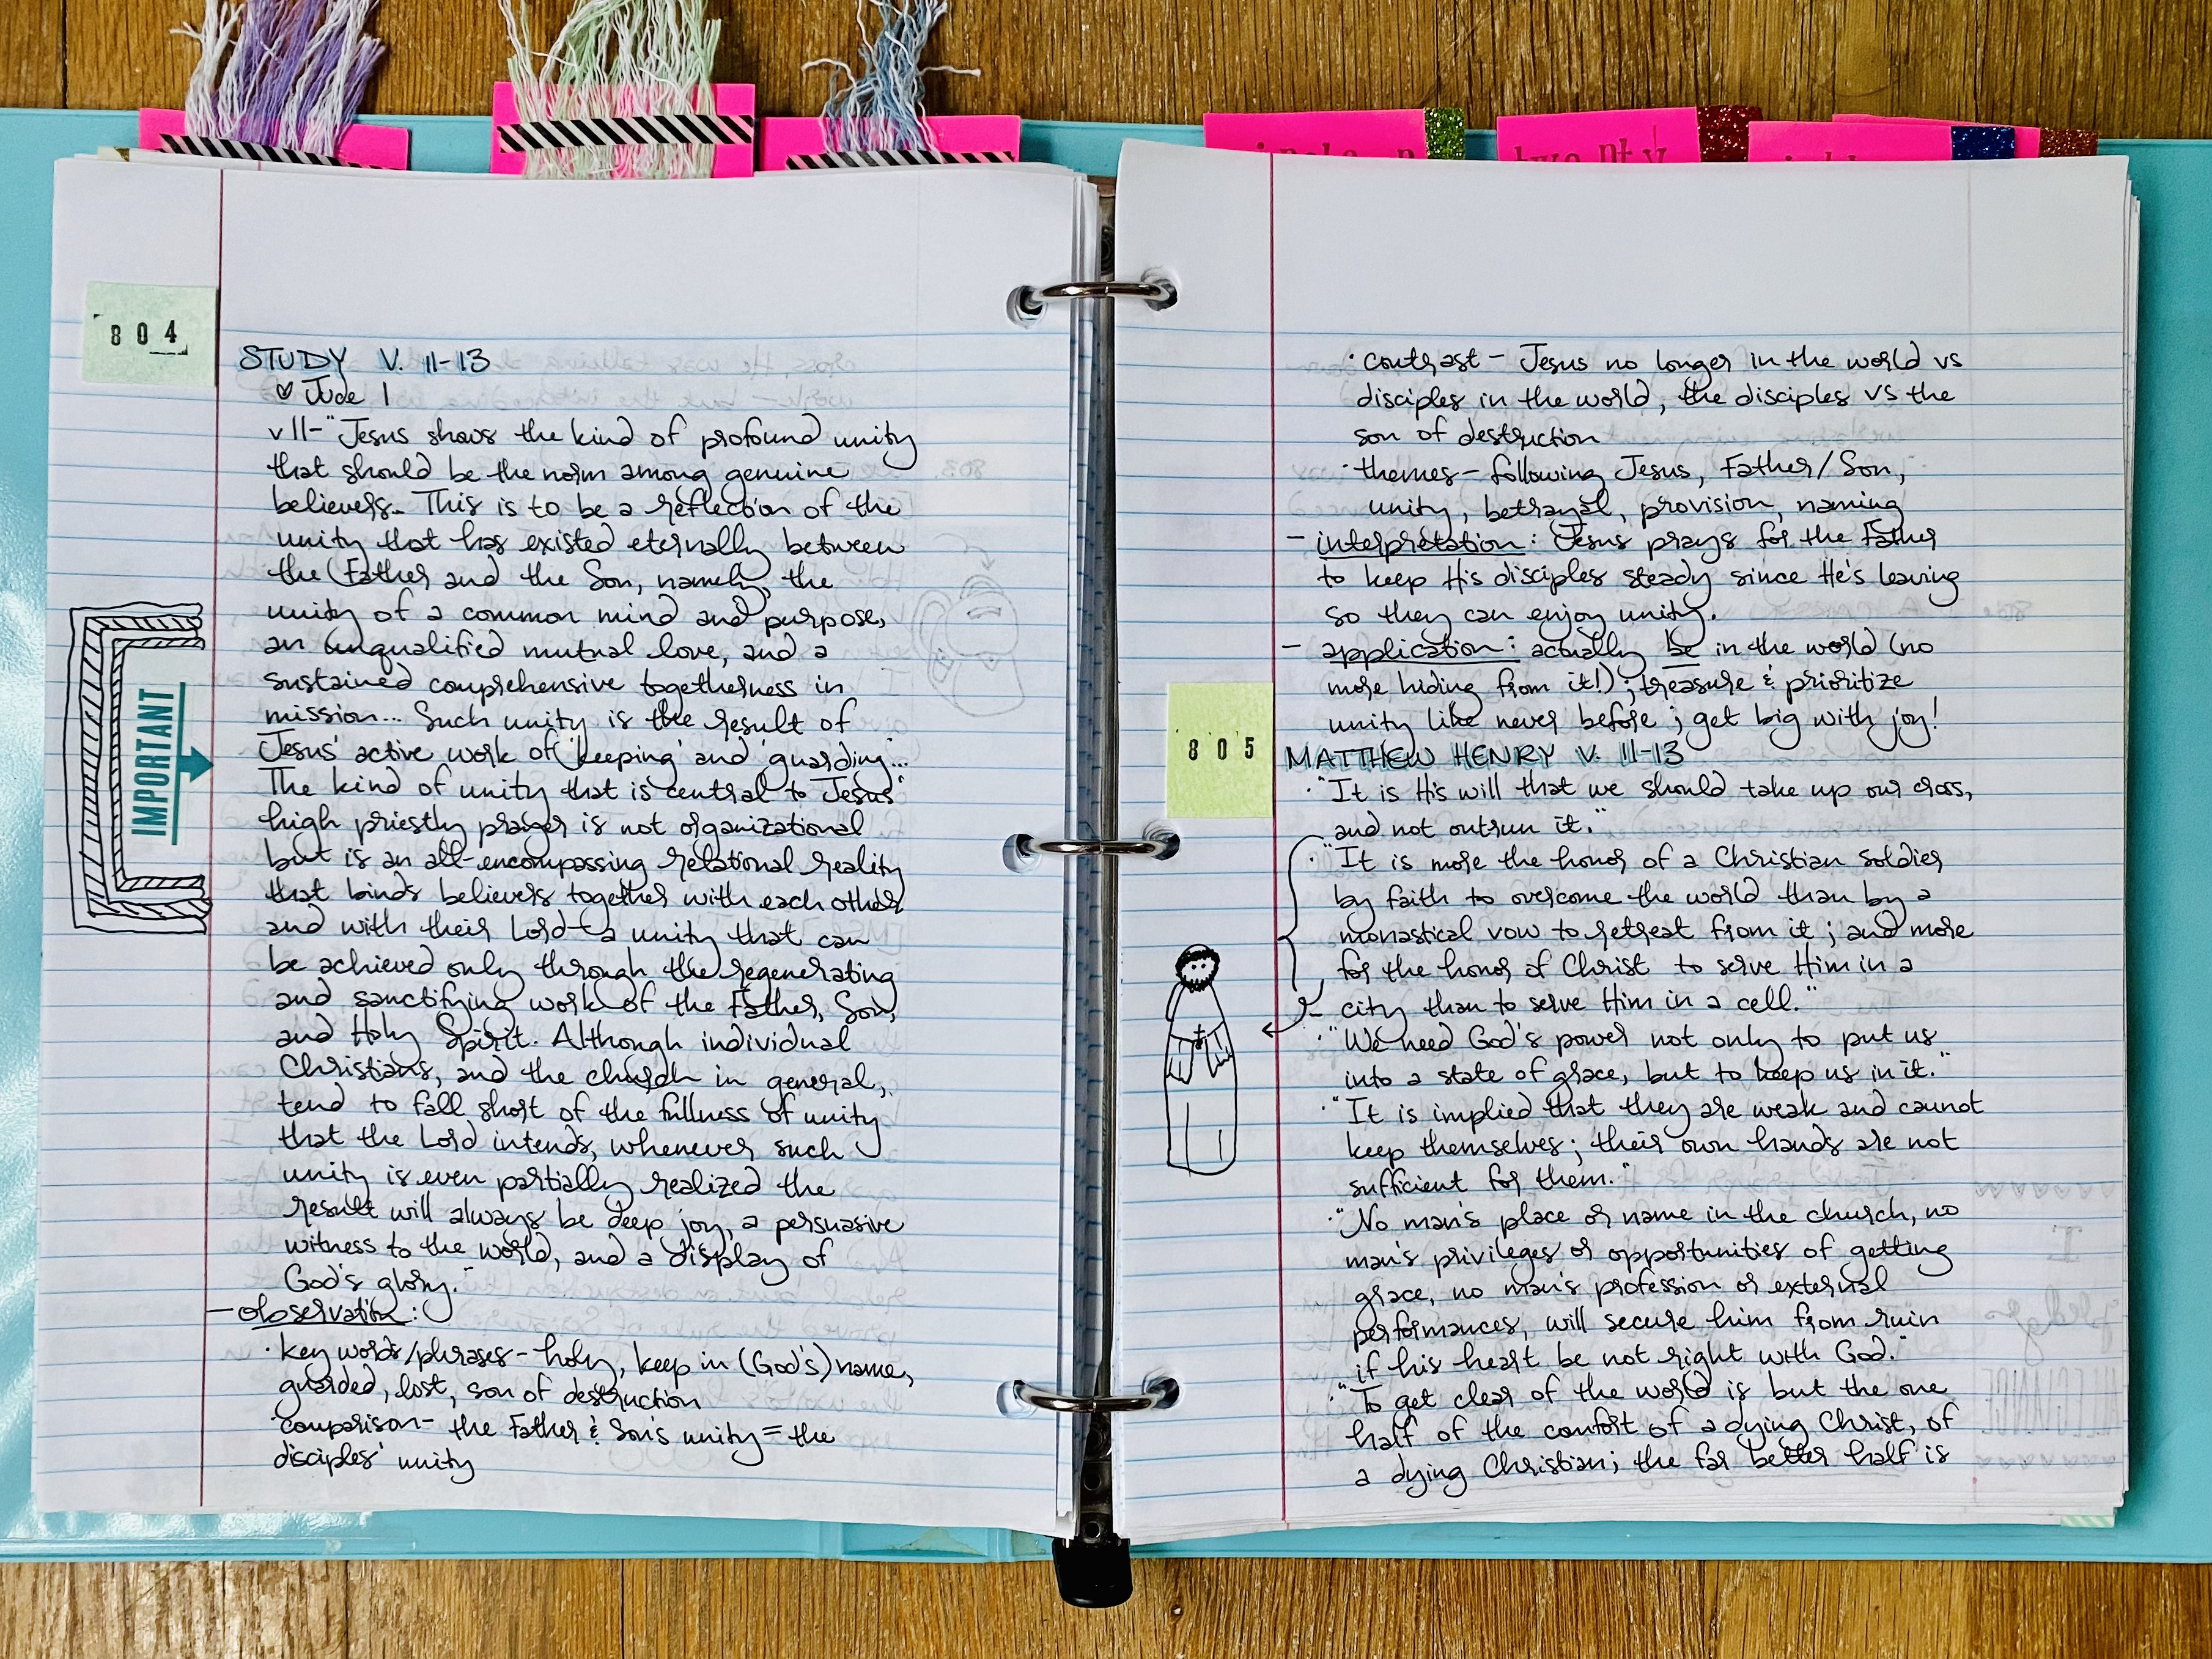 804
STUDY V. 11-13
♡ Jude 1
v 11-"Jesus shows the kind of profound unity
that should be the norm among genuine
believers... This is to be a reflection of the
unity that has existed eternally between
the Father and the Son, namely, the
unity of a common mind and purpose,
an unqualified mutual love, and a
sustained comprehensive togetherness in
mission... Such unity is the result of
Jesus' active work of 'keeping' and 'guarding'...
The kind of unity that is central to Jesus'
high priestly prayer is not organizational
but is an all-encompassing relational reality
that binds believers together with each other
and with their Lord-a unity that can
be achieved only through the regenerating
and sanctifying work of the Father, Son,
and Holy Spirit. Although individual
Christians, and the church in general,
tend to fall short of the fullness of unity
that the Lord intends, whenever such
unity is even partially realized the
result will always be deep joy, a persuasive
witness to the world, and a display of
God's glory."
IMPORTANT
- observation:
· key words/phrases - holy, keep in (God's) name,
guarded, lost, son of destruction
· comparison - the Father & Son's unity = the
disciples' unity
twenty
· contrast - Jesus no longer in the world vs
disciples in the world, the disciples vs the
son of destruction
· themes - following Jesus, Father/Son,
unity, betrayal, provision, naming
- interpretation: Jesus prays for the Father
to keep His disciples steady since He's leaving
so they can enjoy unity.
- application: actually be in the world (no
more hiding from it!); treasure & prioritize
unity like never before; get big with joy!
805
MATTHEW HENRY V. 11-13
· "It is His will that we should take up our cross,
and not outrun it."
· "It is more the honor of a Christian soldier
by faith to overcome the world than by a
monastical vow to retreat from it; and more
for the honor of Christ to serve Him in a
city than to serve Him in a cell."
· "We need God's power not only to put us
into a state of grace, but to keep us in it."
· "It is implied that they are weak and cannot
keep themselves; their own hands are not
sufficient for them."
· "No man's place or name in the church, no
man's privileges or opportunities of getting
grace, no man's profession or external
performances, will secure him from ruin
if his heart be not right with God."
· "To get clear of the world is but the one
half of the comfort of a dying Christ, of
a dying Christian; the far better half is